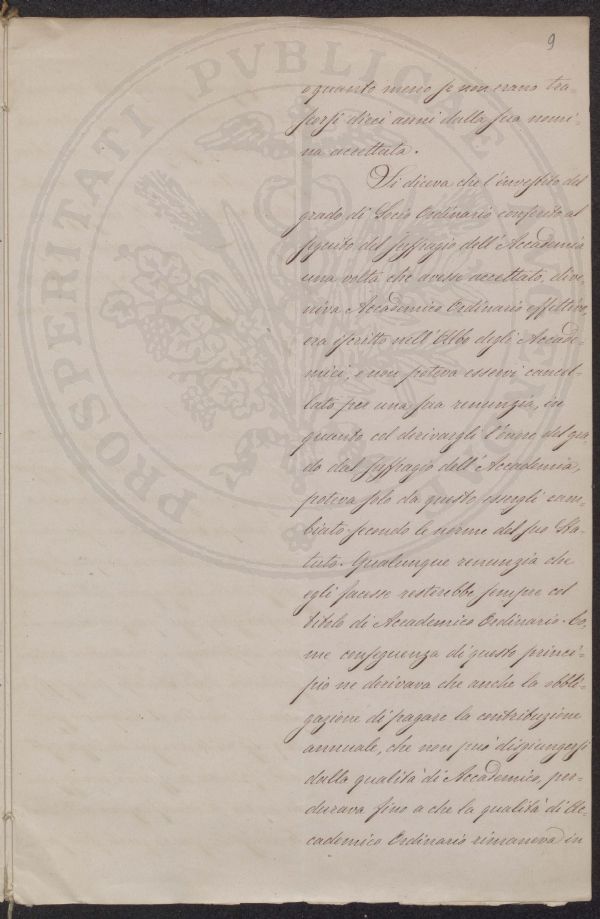 9
o quanto meno se non erano tra-
scorsi dieci anni dalla sua nomi-
na accettata.
Si diceva che l'investito del
grado di Socio Ordinario conferito al
seguito del suffragio dell'Accademia
una volta che avesse accettato, dive-
niva Accademico Ordinario effettivo,
era iscritto nell'Albo degli Accade-
mici, e non poteva esservi cancel-
lato per una sua renunzia, in
quanto col derivargli l'onore del gra-
do dal suffragio dell'Accademia,
poteva solo da questo essergli cam-
biato secondo le norme del suo Sta-
tuto. Qualunque renunzia che
egli facesse resterebbe sempre col
titolo di Accademico Ordinario. Co-
me conseguenza di questo princi-
pio ne derivava che anche la obbli-
gazione di pagare la contribuzione
annuale, che non può disgiungersi
dalla qualità di Accademico, per-
durava fino a che la qualità di Ac-
cademico Ordinario rimaneva in
PROSPERITATI PVBLICAE